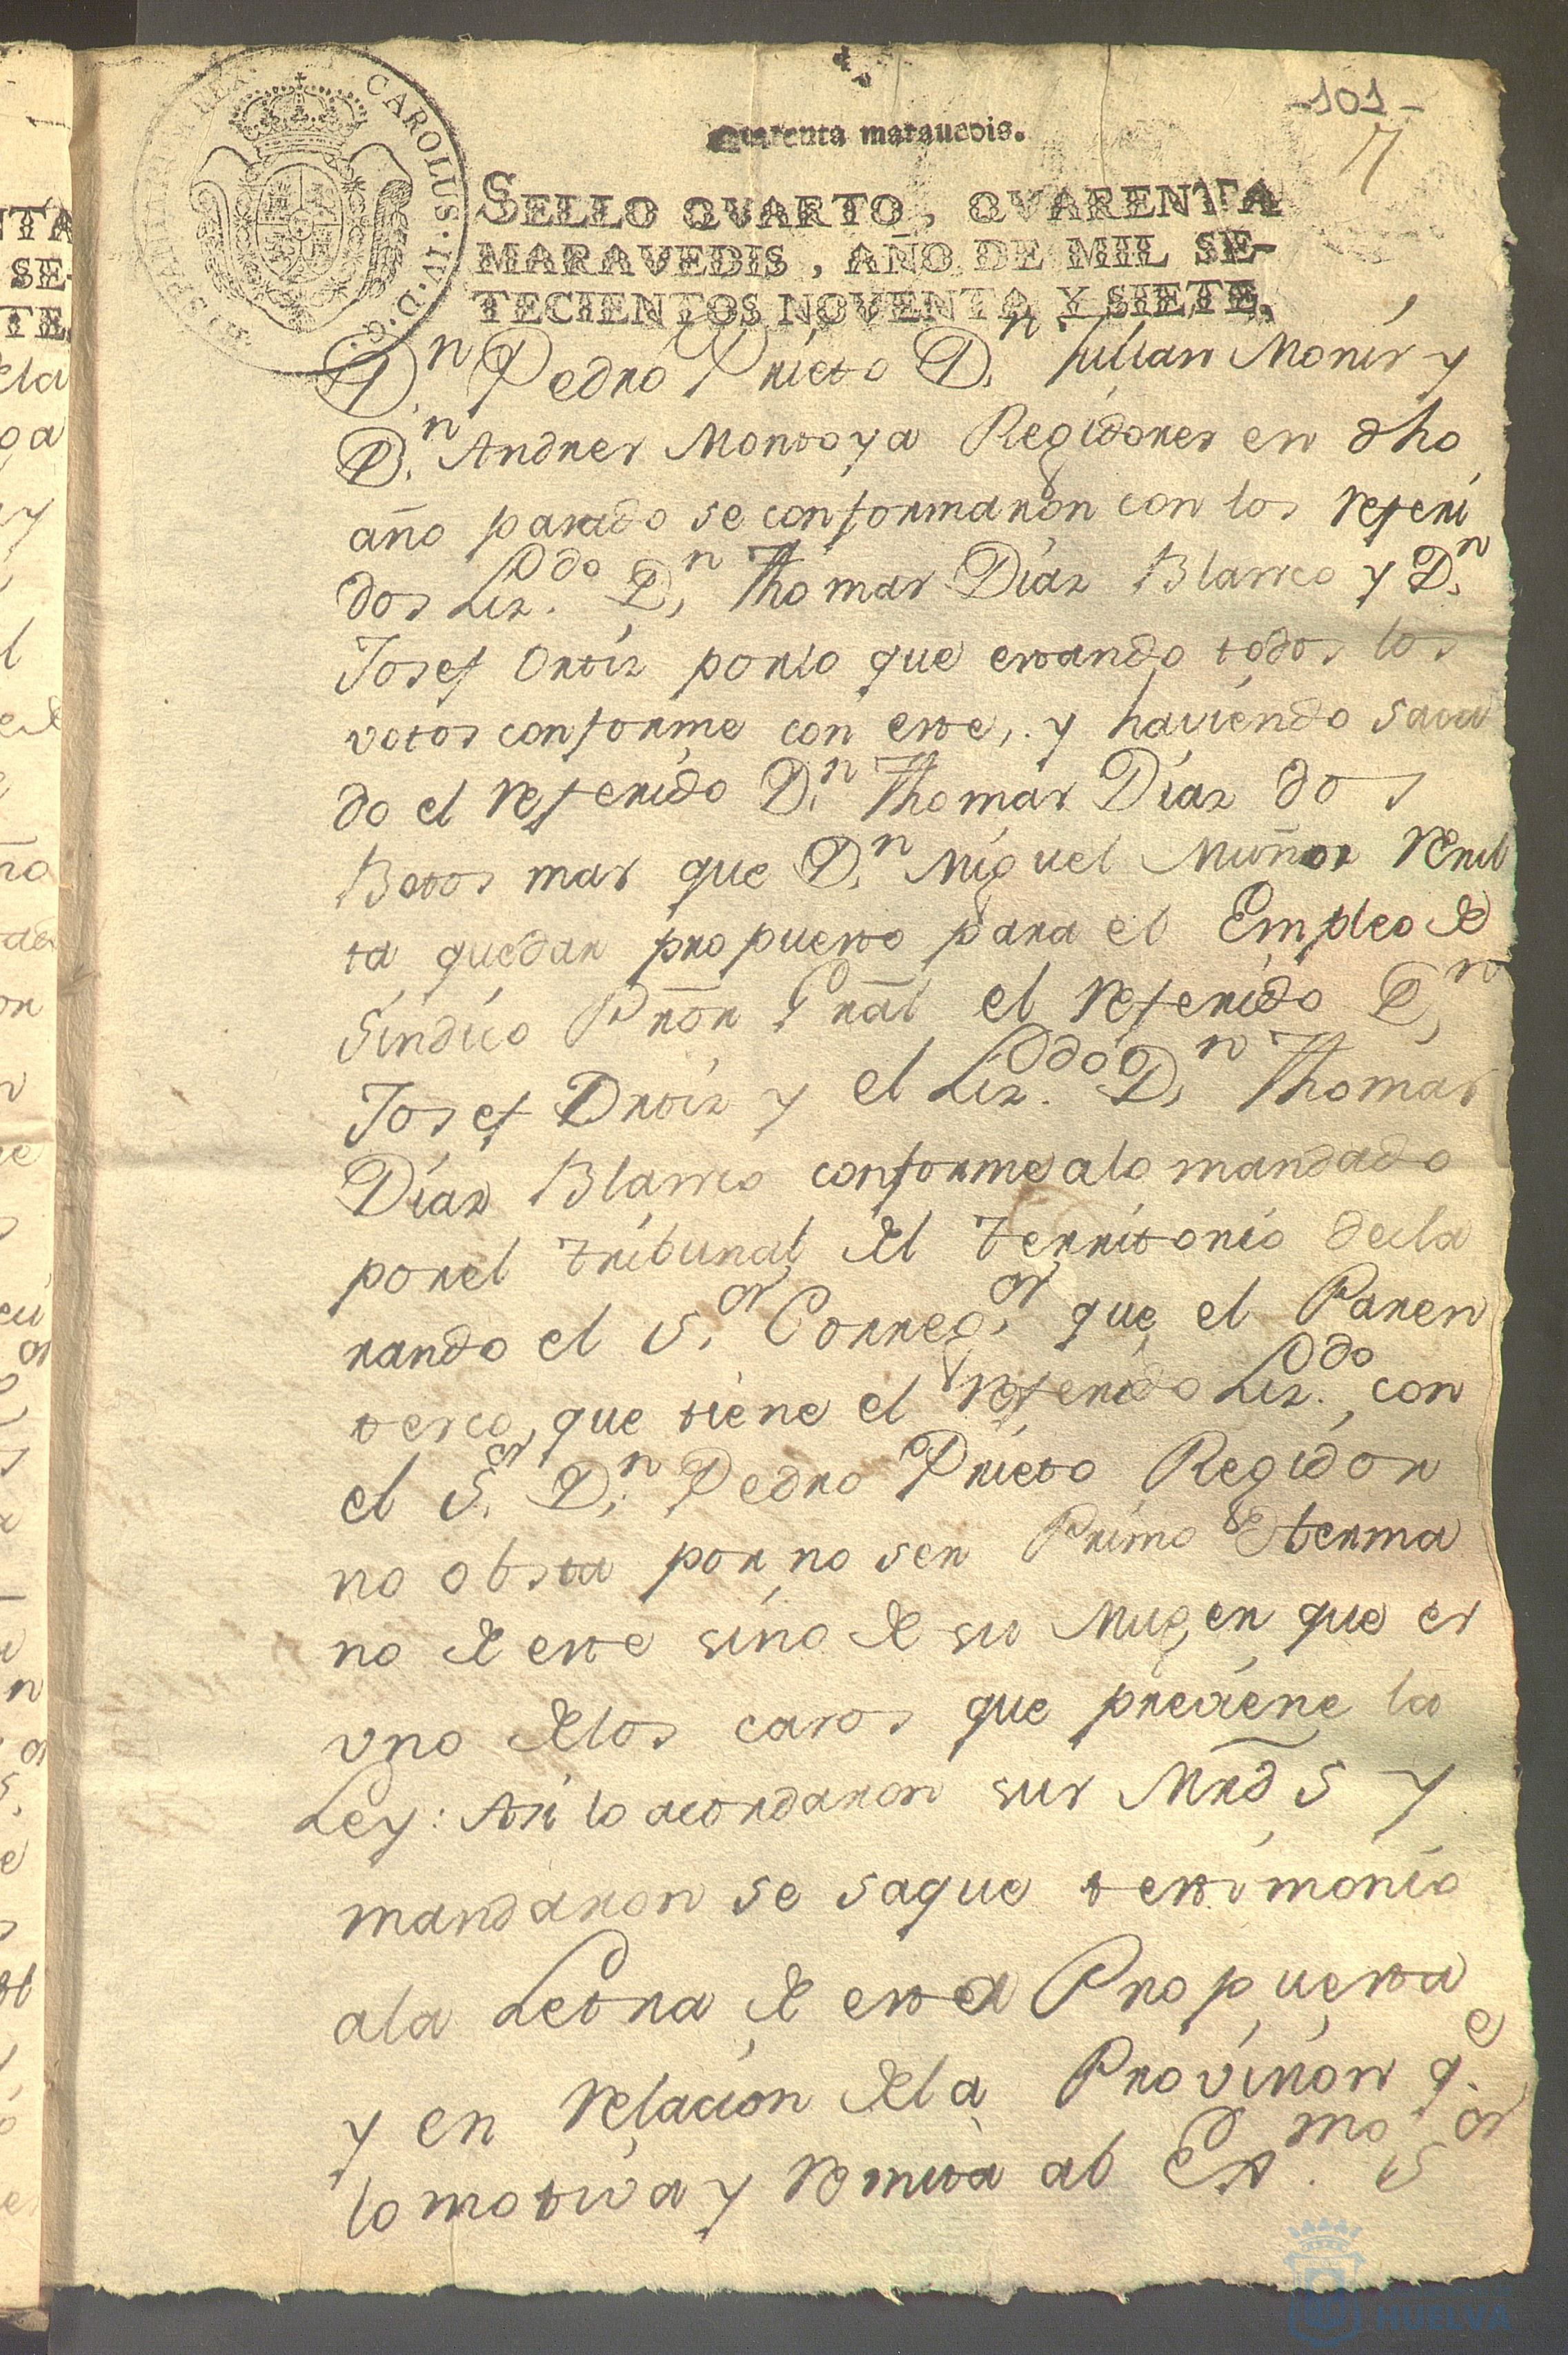 -101-
7
Quarenta marauedis.
HISPANIARUM REX. CAROLUS. IV. D. G.
SELLO QVARTO, QVARENTA
MARAVEDIS, AÑO DE MIL SE-
TECIENTOS NOVENTA Y SIETE.
D.n Pedro Prieto D.n Julian Monis y
D.n Andres Montoya Regidores en dho
año pasado se conformaron con los referi
dos Liz.do D.n Thomas Diaz Blanco y D.n
Josef Ortiz por lo que estando todos los
votos conforme con este, y haviendo saca
do el referido D.n Thomas Diaz dos
Botos mas que D.n Miguel Muñoz resul
ta quedar propuesto para el Empleo de
Sindico Pror Gral el referido D.n
Josef Ortiz y el Liz.do D.n Thomas
Diaz Blanco conforme alo mandado
por el tribunal del territorio decla
rando el S.or Correg.or que el Paren
tesco, que tiene el referido Liz.do con
el S.or D.n Pedro Prieto Regidor
no obsta por no ser Primo herma
no de este sino de su Muger que es
vno delos casos que previene la
Ley: Asi lo acordaron sus Mrds y
mandaron se saque testimonio
ala Letra de esta Propuesta
y en relacion dela Provision q.e
lo motiva y remita al Ex.mo S.or
HUELVA